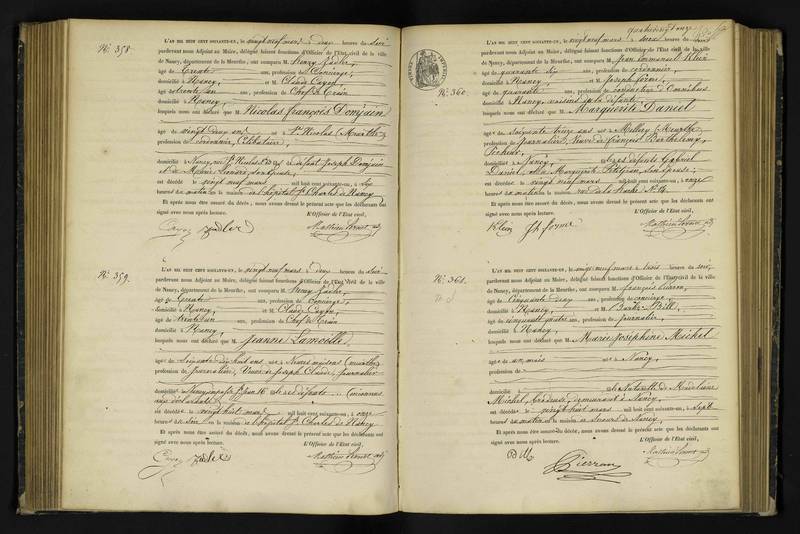 N° 358
L'AN MIL HUIT CENT SOIXANTE-UN, le vingt neuf mars à deux heures du soir
pardevant nous Adjoint au Maire, délégué faisant fonctions d'Officier de l'Etat civil de la ville
de Nancy, département de la Meurthe, ont comparu M. Henry
âgé de ans, profession de Concierge,
domicilié à Nancy, et M. Claude
âgé de trente un ans, profession de Chef de Train
domicilié à Nancy,
lesquels nous ont déclaré que M. Nicolas François Domjuin
âgé de vingt deux ans né à St Nicolas (Meurthe)
profession de cordonnier, Célibataire,
domicilié à Nancy, rue St Nicolas de défunt Joseph Domjuin
et de son épouse,
est décédé le vingt neuf mars mil huit cent soixante-un, à six
heures du matin en la maison de l'hôpital St Charles de Nancy
Et après nous être assuré du décès, nous avons dressé le présent acte que les déclarants ont
signé avec nous après lecture.
L'Officier de l'Etat civil,
N° 359.
L'AN MIL HUIT CENT SOIXANTE-UN, le vingt neuf mars à deux heures du soir
pardevant nous Adjoint au Maire, délégué faisant fonctions d'Officier de l'Etat civil de la ville
de Nancy, département de la Meurthe, ont comparu M. Henry
âgé de ans, profession de Concierge,
domicilié à Nancy, et M. Claude
âgé de trente un ans, profession de Chef de Train
domicilié à Nancy,
lesquels nous ont déclaré que M. Jeanne Lamoille
âgée de soixante dix huit ans née à Neuves maisons (Meurthe)
profession de journalière, Veuve de Joseph Claude, journalier
domiciliée à Nancy
est décédée le vingt huit mars mil huit cent soixante-un, à onze
heures du soir en la maison de l'hôpital St Charles de Nancy
Et après nous être assuré du décès, nous avons dressé le présent acte que les déclarants ont
signé avec nous après lecture.
L'Officier de l'Etat civil,
quatre vingt onze
N° 360.
L'AN MIL HUIT CENT SOIXANTE-UN, le vingt neuf mars à heures du soir
pardevant nous Adjoint au Maire, délégué faisant fonctions d'Officier de l'Etat civil de la ville
de Nancy, département de la Meurthe, ont comparu M. Jean Emmanuel Klein
âgé de quarante six ans, profession de cordonnier
domicilié à Nancy et M. Joseph
âgé de quarante ans, profession de conducteur d'omnibus
domicilié à Nancy, voisins de la défunte,
lesquels nous ont déclaré que M. Marguerite Daniel
âgée de soixante treize ans née à (Meurthe)
profession de journalière, Veuve de François Barthélemy
domiciliée à Nancy, fille des défunts Gabriel
Daniel, et de Marguerite Petitjean, son épouse;
est décédée le vingt neuf mars mil huit cent soixante-un, à onze
heures du matin en la maison rue
Et après nous être assuré du décès, nous avons dressé le présent acte que les déclarants ont
signé avec nous après lecture.
L'Officier de l'Etat civil,
Klein
N° 361.
L'AN MIL HUIT CENT SOIXANTE-UN, le vingt neuf mars à trois heures du soir,
pardevant nous Adjoint au Maire, délégué faisant fonctions d'Officier de l'Etat civil de la ville
de Nancy, département de la Meurthe, ont comparu M. François Pierron,
âgé de cinquante deux ans, profession de concierge,
domicilié à Nancy, et M.
âgé de cinquante quatre ans, profession de journalier,
domicilié à Nancy
lesquels nous ont déclaré que M. Marie Joséphine Michel
âgée de un mois née à Nancy,
profession de
domiciliée à fille Naturelle de Madeleine
Michel, brodeuse, demeurant à Nancy,
est décédée le vingt huit mars mil huit cent soixante-un, à sept
heures du matin en la maison de secours de Nancy,
Et après nous être assuré du décès, nous avons dressé le présent acte que les déclarants ont
signé avec nous après lecture.
L'Officier de l'Etat civil,
Pierron